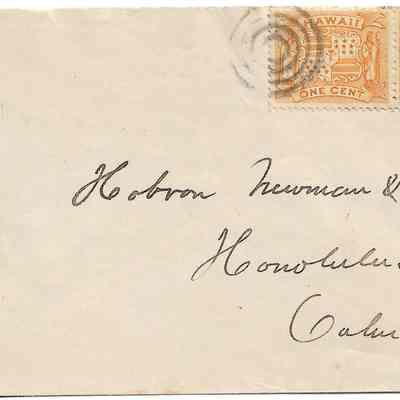 HAWAII
ONE CENT
Hobron Newman &
Honolulu
Oahu